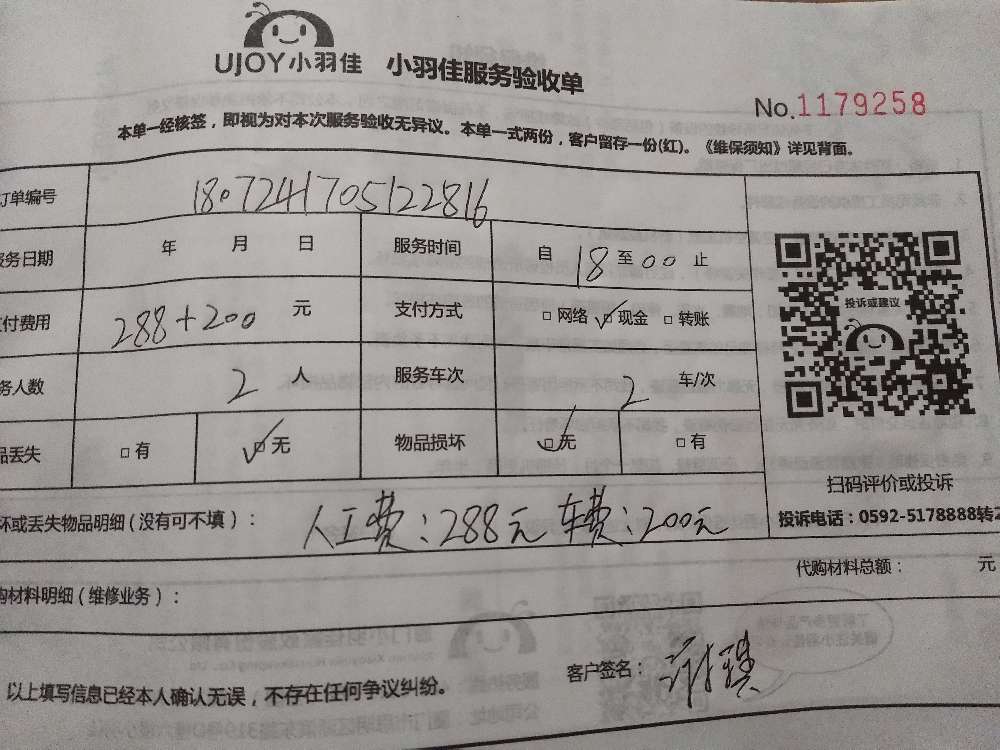 UJOY小羽佳 小羽佳服务验收单
No.1179258
本单一经核签，即视为对本次服务验收无异议。本单一式两份，客户留存一份(红)。《维保须知》详见背面。
订单编号 1807241705122816
服务日期 年 月 日 服务时间 自 18 至 00 止
支付费用 288+200 元 支付方式 □网络 ☑现金 □转账
服务人数 2 人 服务车次 2 车/次
物品丢失 □有 ☑无 物品损坏 ☑无 □有
投诉或建议
扫码评价或投诉
投诉电话：0592-5178888转2
损坏或丢失物品明细（没有可不填）： 人工费：288元 车费：200元
代购材料总额： 元
代购材料明细（维修业务）：
以上填写信息已经本人确认无误，不存在任何争议纠纷。
客户签名：